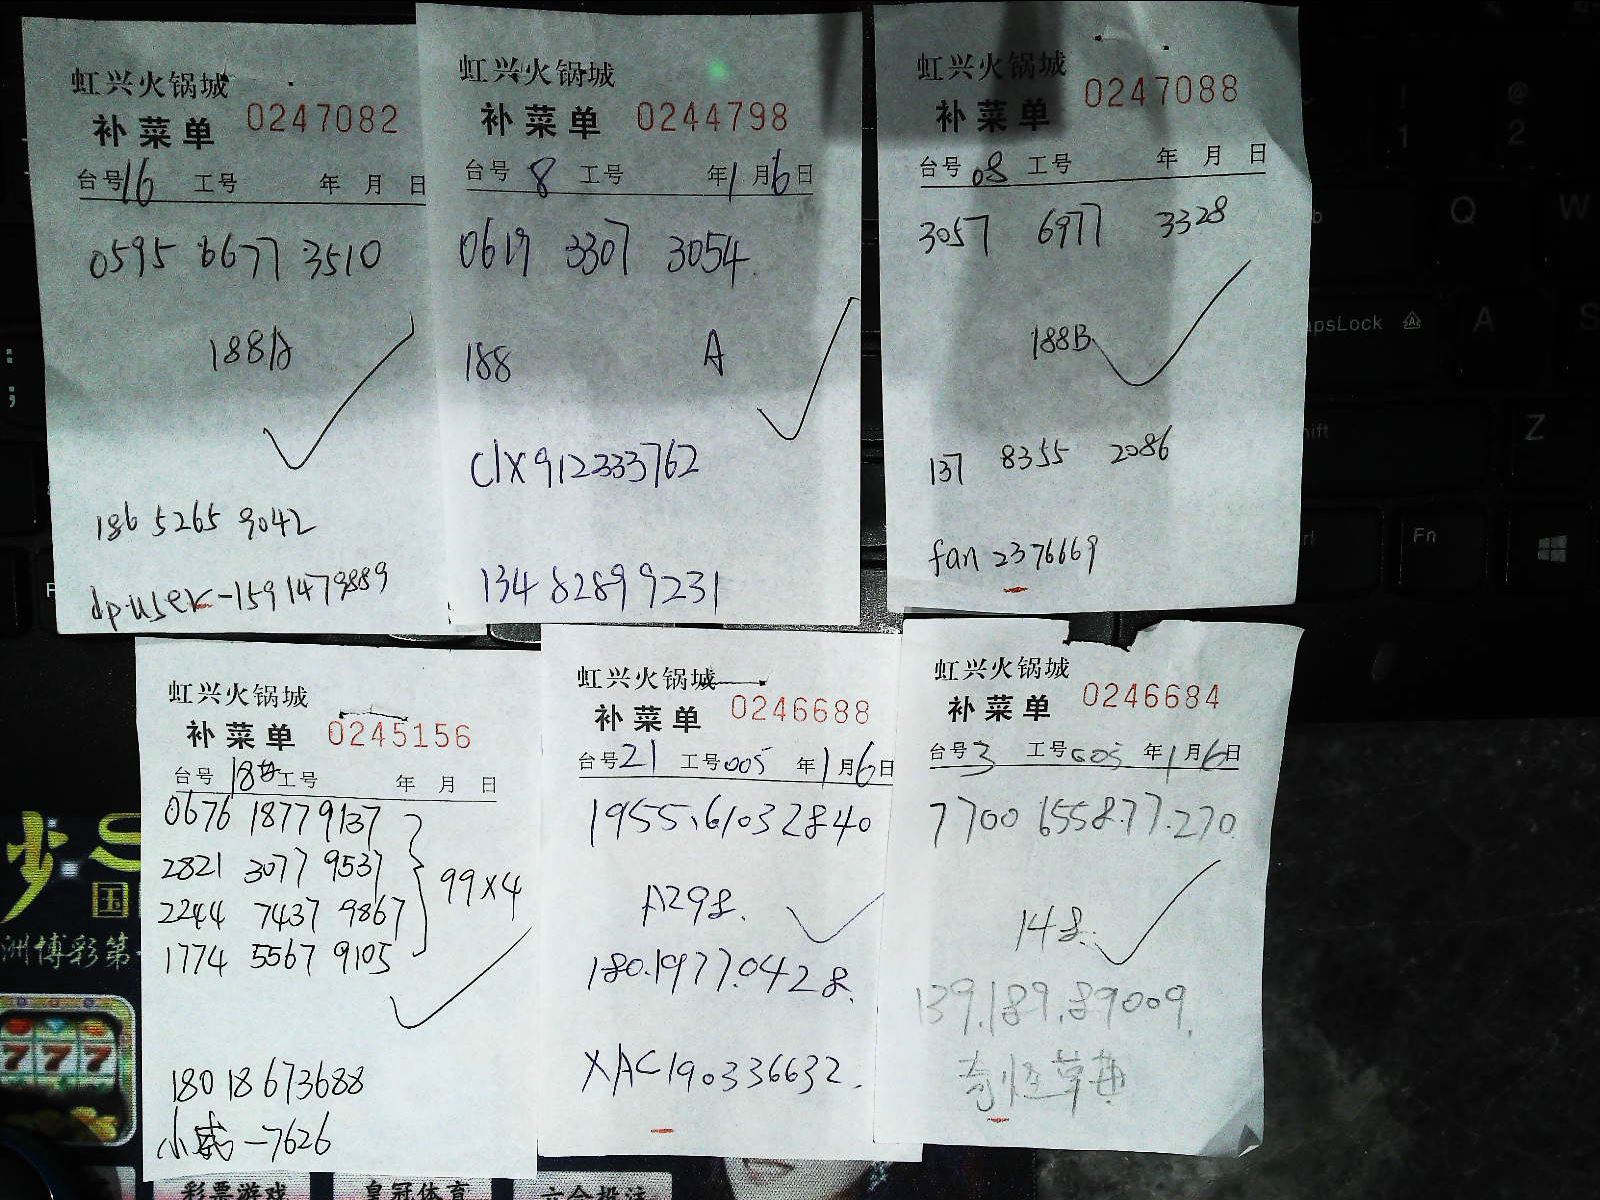 虹兴火锅城
补菜单 0247082
台号16 工号 年 月 日
0595 6677 3510
188A
186 5265 9042
dpuser-15914798889
虹兴火锅城
补菜单 0244798
台号 8 工号 年1月6日
0619 3307 3054
188 A
clx912333762
134 82899231
虹兴火锅城
补菜单 0247088
台号 08 工号 年 月 日
3057 6977 3328
188B
137 8355 2086
fan 2376669
虹兴火锅城
补菜单 0245156
台号 18 工号 年 月 日
0676 1877 9137
2821 3077 9537
2244 7437 9867
1774 5567 9105
99×4
180 18673688
小威-7626
虹兴火锅城
补菜单 0246688
台号21 工号005 年1月6日
1955、61032840
A298.
180.1977.0428.
XAC190336632.
虹兴火锅城
补菜单 0246684
台号3 工号005 年1月6日
7700 6558.77.270.
148.
139.189.89009.
奇怪草莓
国
洲博彩第
777
彩票游戏
皇冠体育
六合投注
CapsLock
A
S
Q
W
Z
Fn
!
1
@
2